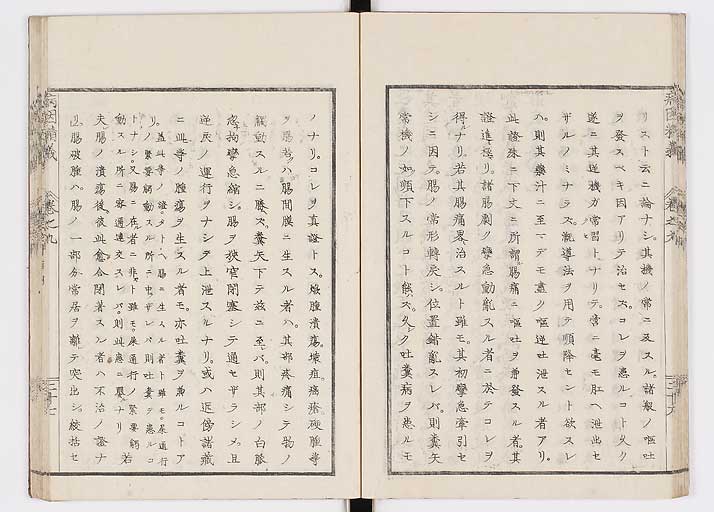 リスト云ニ論ナシ。其機ノ常ニ及スル。諸般ノ嘔吐
ヲ發スベキ因アリテ治セズ。コレヲ患ルコト久ク
遂ニ其逆機ガ常習トナリテ。常ニ毫モ肛ヘ泄出セ
ザルノミナラズ。灌導法ヲ用テ順降セント欲スレ
ハ。則其藥汁ニ至マデモ盡ク嘔逆吐泄スル者アリ。
此證殊ニ下文ニ所謂。腸痛ニ嘔吐ヲ兼發スル者。其
證進極リ。諸腸劇ク攣急動亂スル者ニ於テコレヲ
得ナリ。若其腸痛畧治スルト雖モ。其初攣急牽引セ
シニ因テ。腸ノ常形轉戻シ。位置錯亂スレバ。則糞矢
常機ノ如順下スルコト能ズ。久ク吐糞病ヲ患ルモ
ノナリ。コレヲ真證トス。焮腫潰瘍。壊疽。癌瘡。硬腫等
ヲ腸若ハ腸間膜ニ生スル者ハ。其部疼痛シテ物ノ
觝動スルニ勝ズ。糞矢下テ茲ニ至バ。則其部ノ白膜
忽拘攣急縮シ。腸ヲ狹窄閉塞シテ通セザラシメ。且
逆戻ノ運行ヲナシテ上泄スルナリ。或ハ近傍諸藏
ニ此等ノ腫瘍ヲ生スル者モ。亦吐糞ヲ兼ルコトア
リ。蓋此等ノ證。タトヘ腸ニ生スル者ト雖モ。屎通行
ノ緊要觸動スル所ニ中ザレバ則吐糞ヲ患ルコ
トナシ。又腸ニ在者ニ非ト雖モ。屎通行ノ緊要觸
動スル所ニ容通連交スレバ。則此患ニ罹ナリ 若
夫腸ノ潰瘍後。彼此愈合閉著スル者ハ不治ノ證ナ
リ。腸破腫ハ。腸ノ一部分常居ヲ離テ突出シ。絞括セ
卷之九
卷之九
三十六
三十七